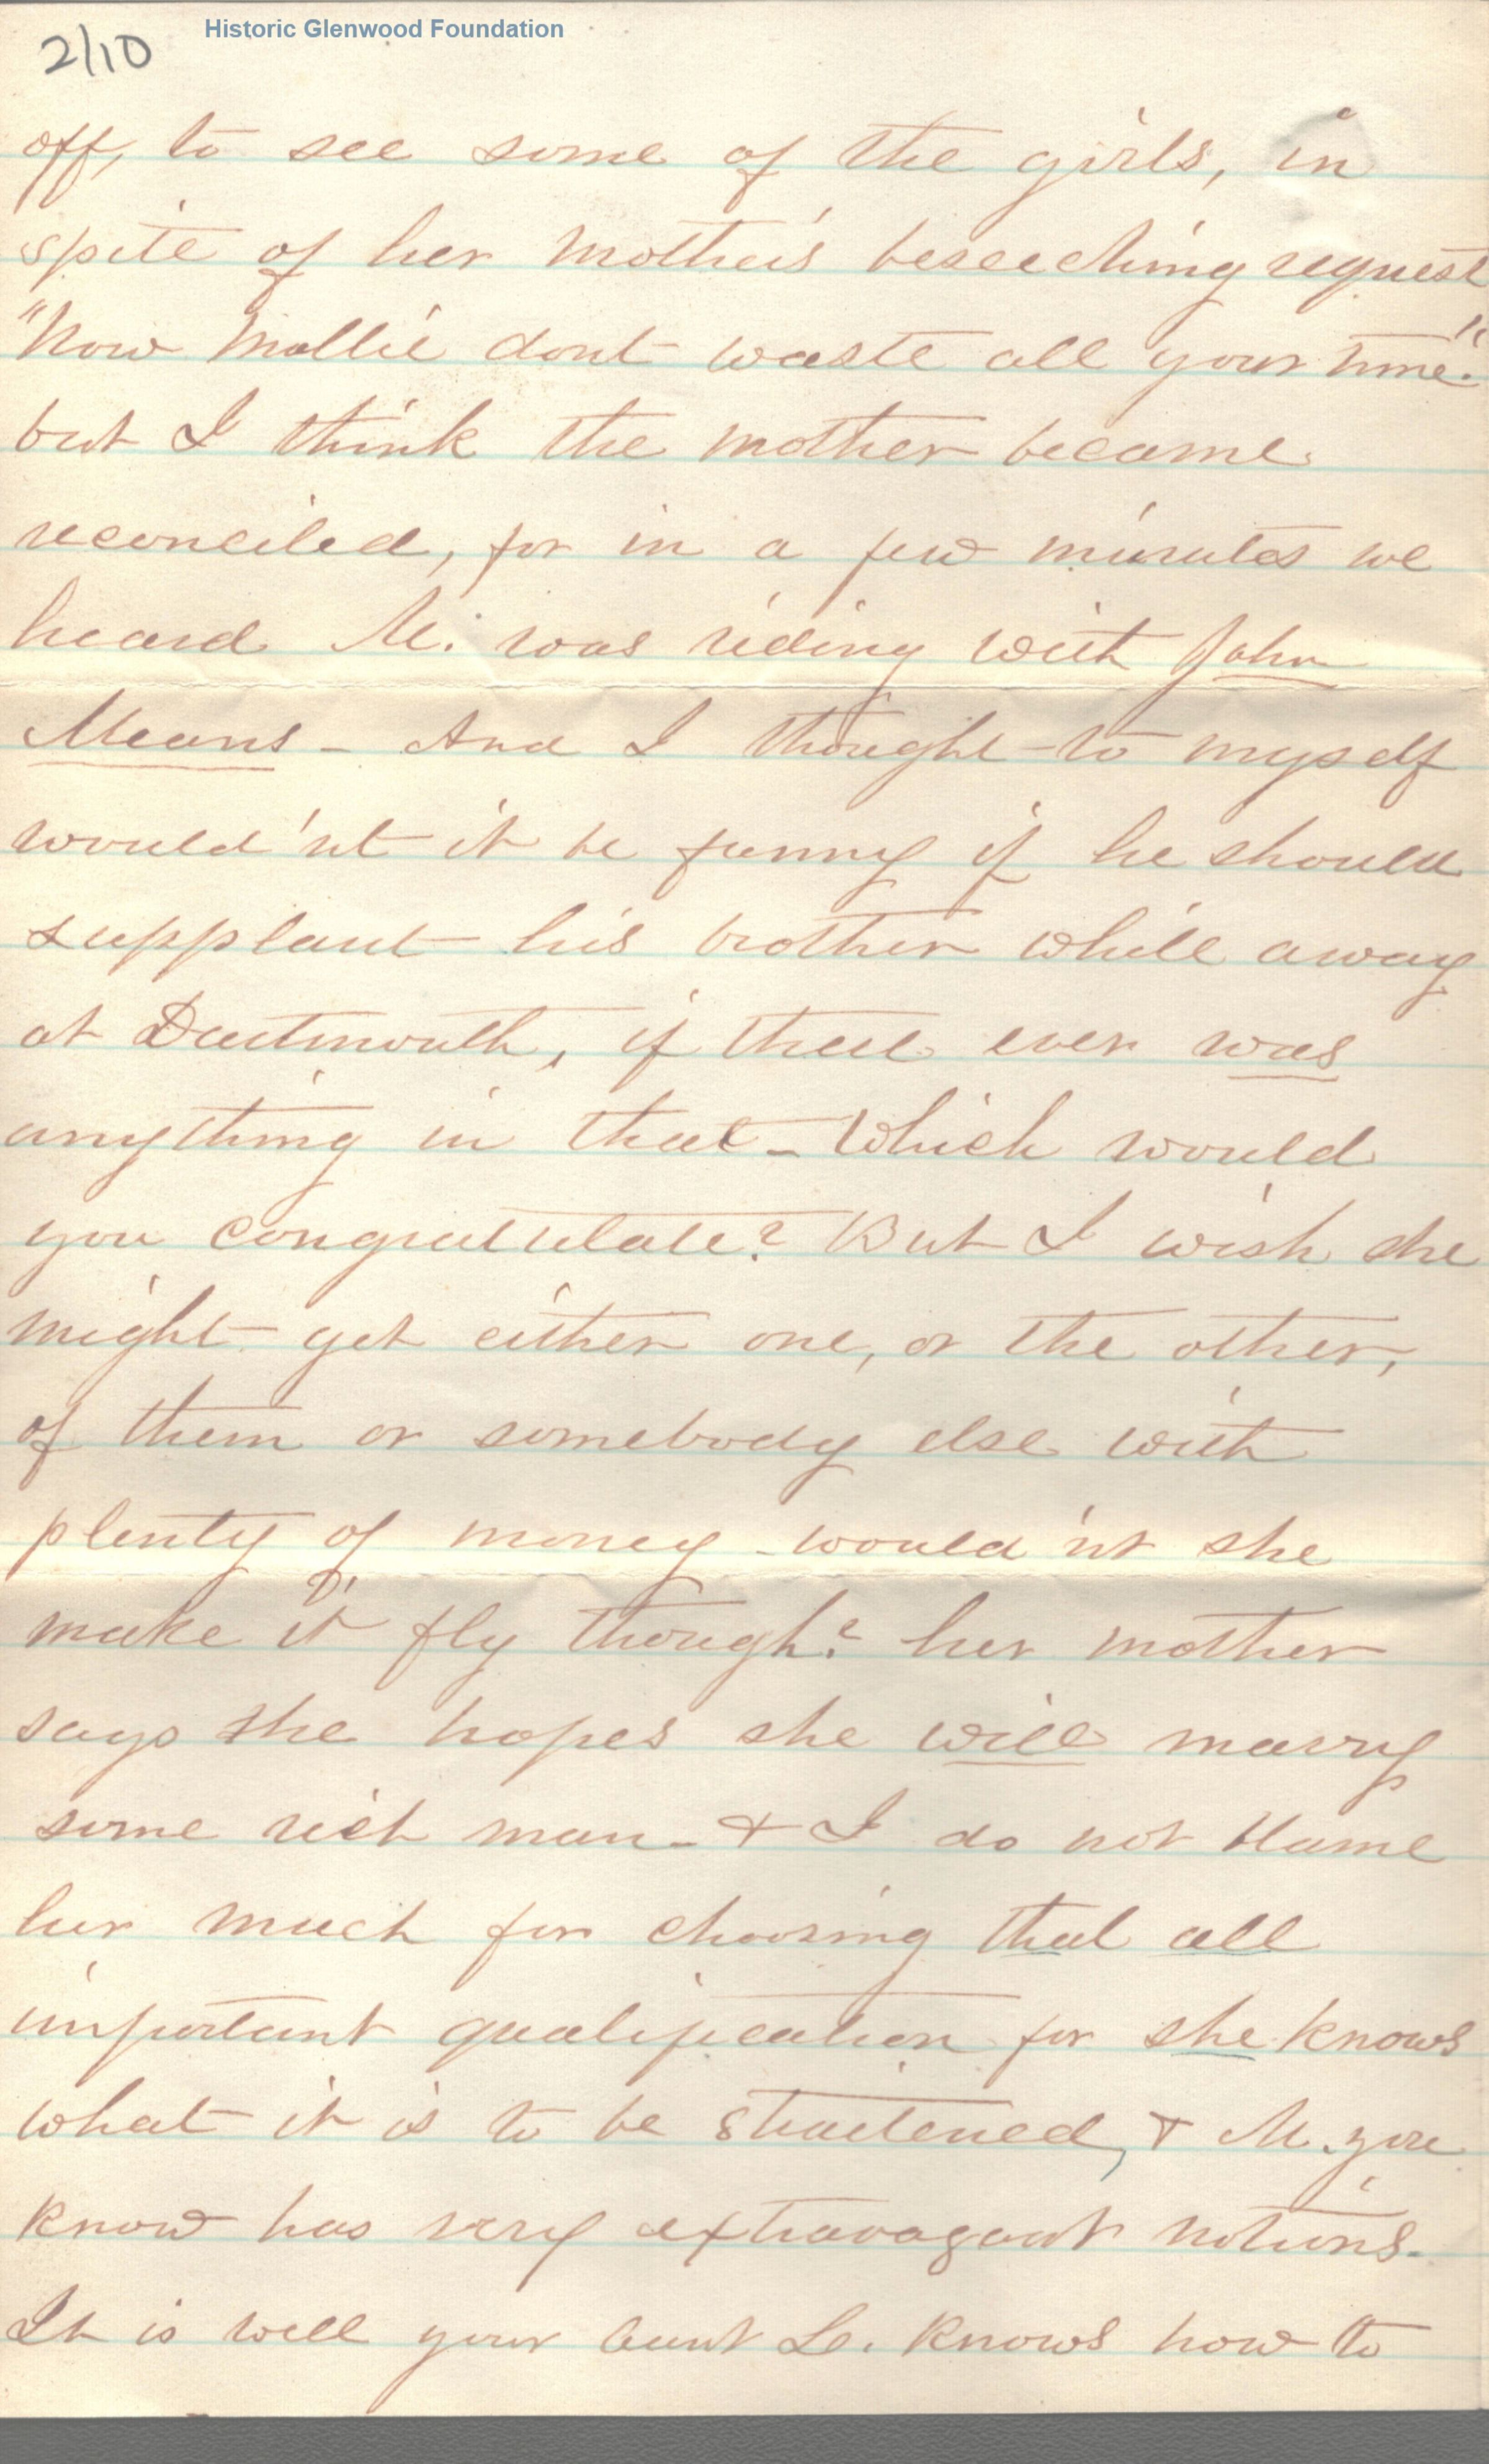 2/10 Historic Glenwood Foundation
off, to see some of the girls, in
spite of her mother's beseeching request
"Now Mollie dont waste all your time."
but I think the mother became
reconciled, for in a few minutes we
heard M. was riding with John
Means - And I thought to myself
would'nt it be funny if he should
supplant his brother while away
at Dartmouth, if there ever was
anything in that - Which would
you congratulate? But I wish she
might get either one, or the other,
of them or somebody else with
plenty of money - would'nt she
make it fly though? her mother
says she hopes she will marry
some rich man - & I do not blame
her much for choosing that all
important qualification for she knows
what it is to be straitened, & M. you
know has very extravagant notions.
It is well your aunt L. knows how to